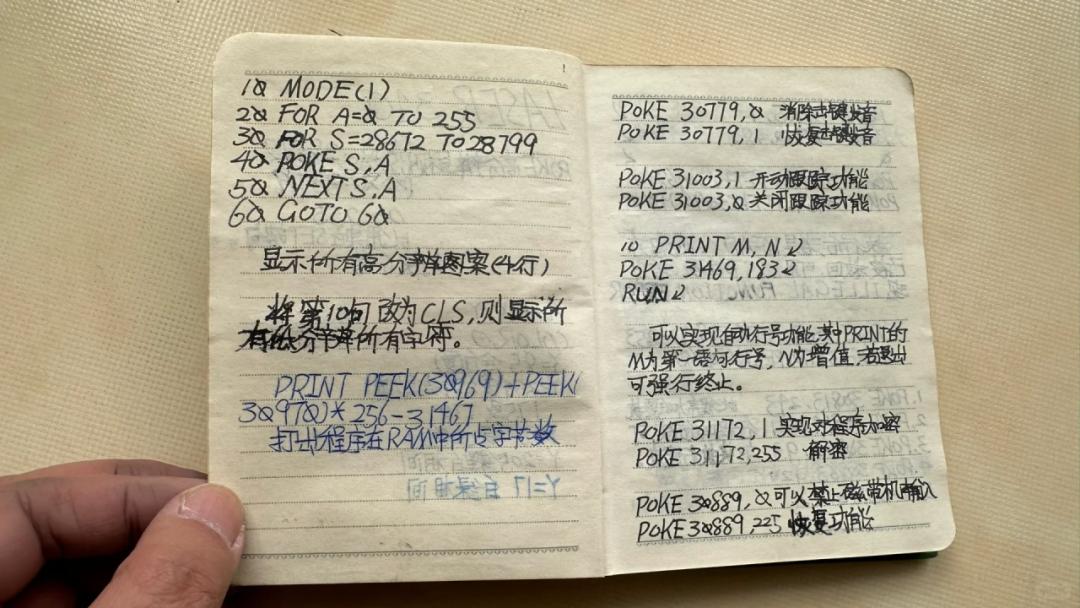 10 MODE(1)
20 FOR A=0 TO 255
30 FOR S=28672 TO 28799
40 POKE S,A
50 NEXT S,A
60 GOTO 60
显示所有高分辨图案(4行)
将第10句改为CLS,则显示所
有低分辨所有字符。
PRINT PEEK(30969)+PEEK(
30970)*256-31467
打出程序在RAM中所占字节数
POKE 30779,0 消除击键声音
POKE 30779,1 恢复击键声音
POKE 31003,1 开动跟踪功能
POKE 31003,0 关闭跟踪功能
10 PRINT M,N↙
POKE 31469,183↙
RUN↙
可以实现自动行号功能,其中PRINT的
M为第一语句行号,N为增值,若退出
可强行终止。
POKE 31172,1 实现对程序加密
POKE 31172,255 解密
POKE 30889,0 可以禁止磁带机输入
POKE 30889,225 恢复功能